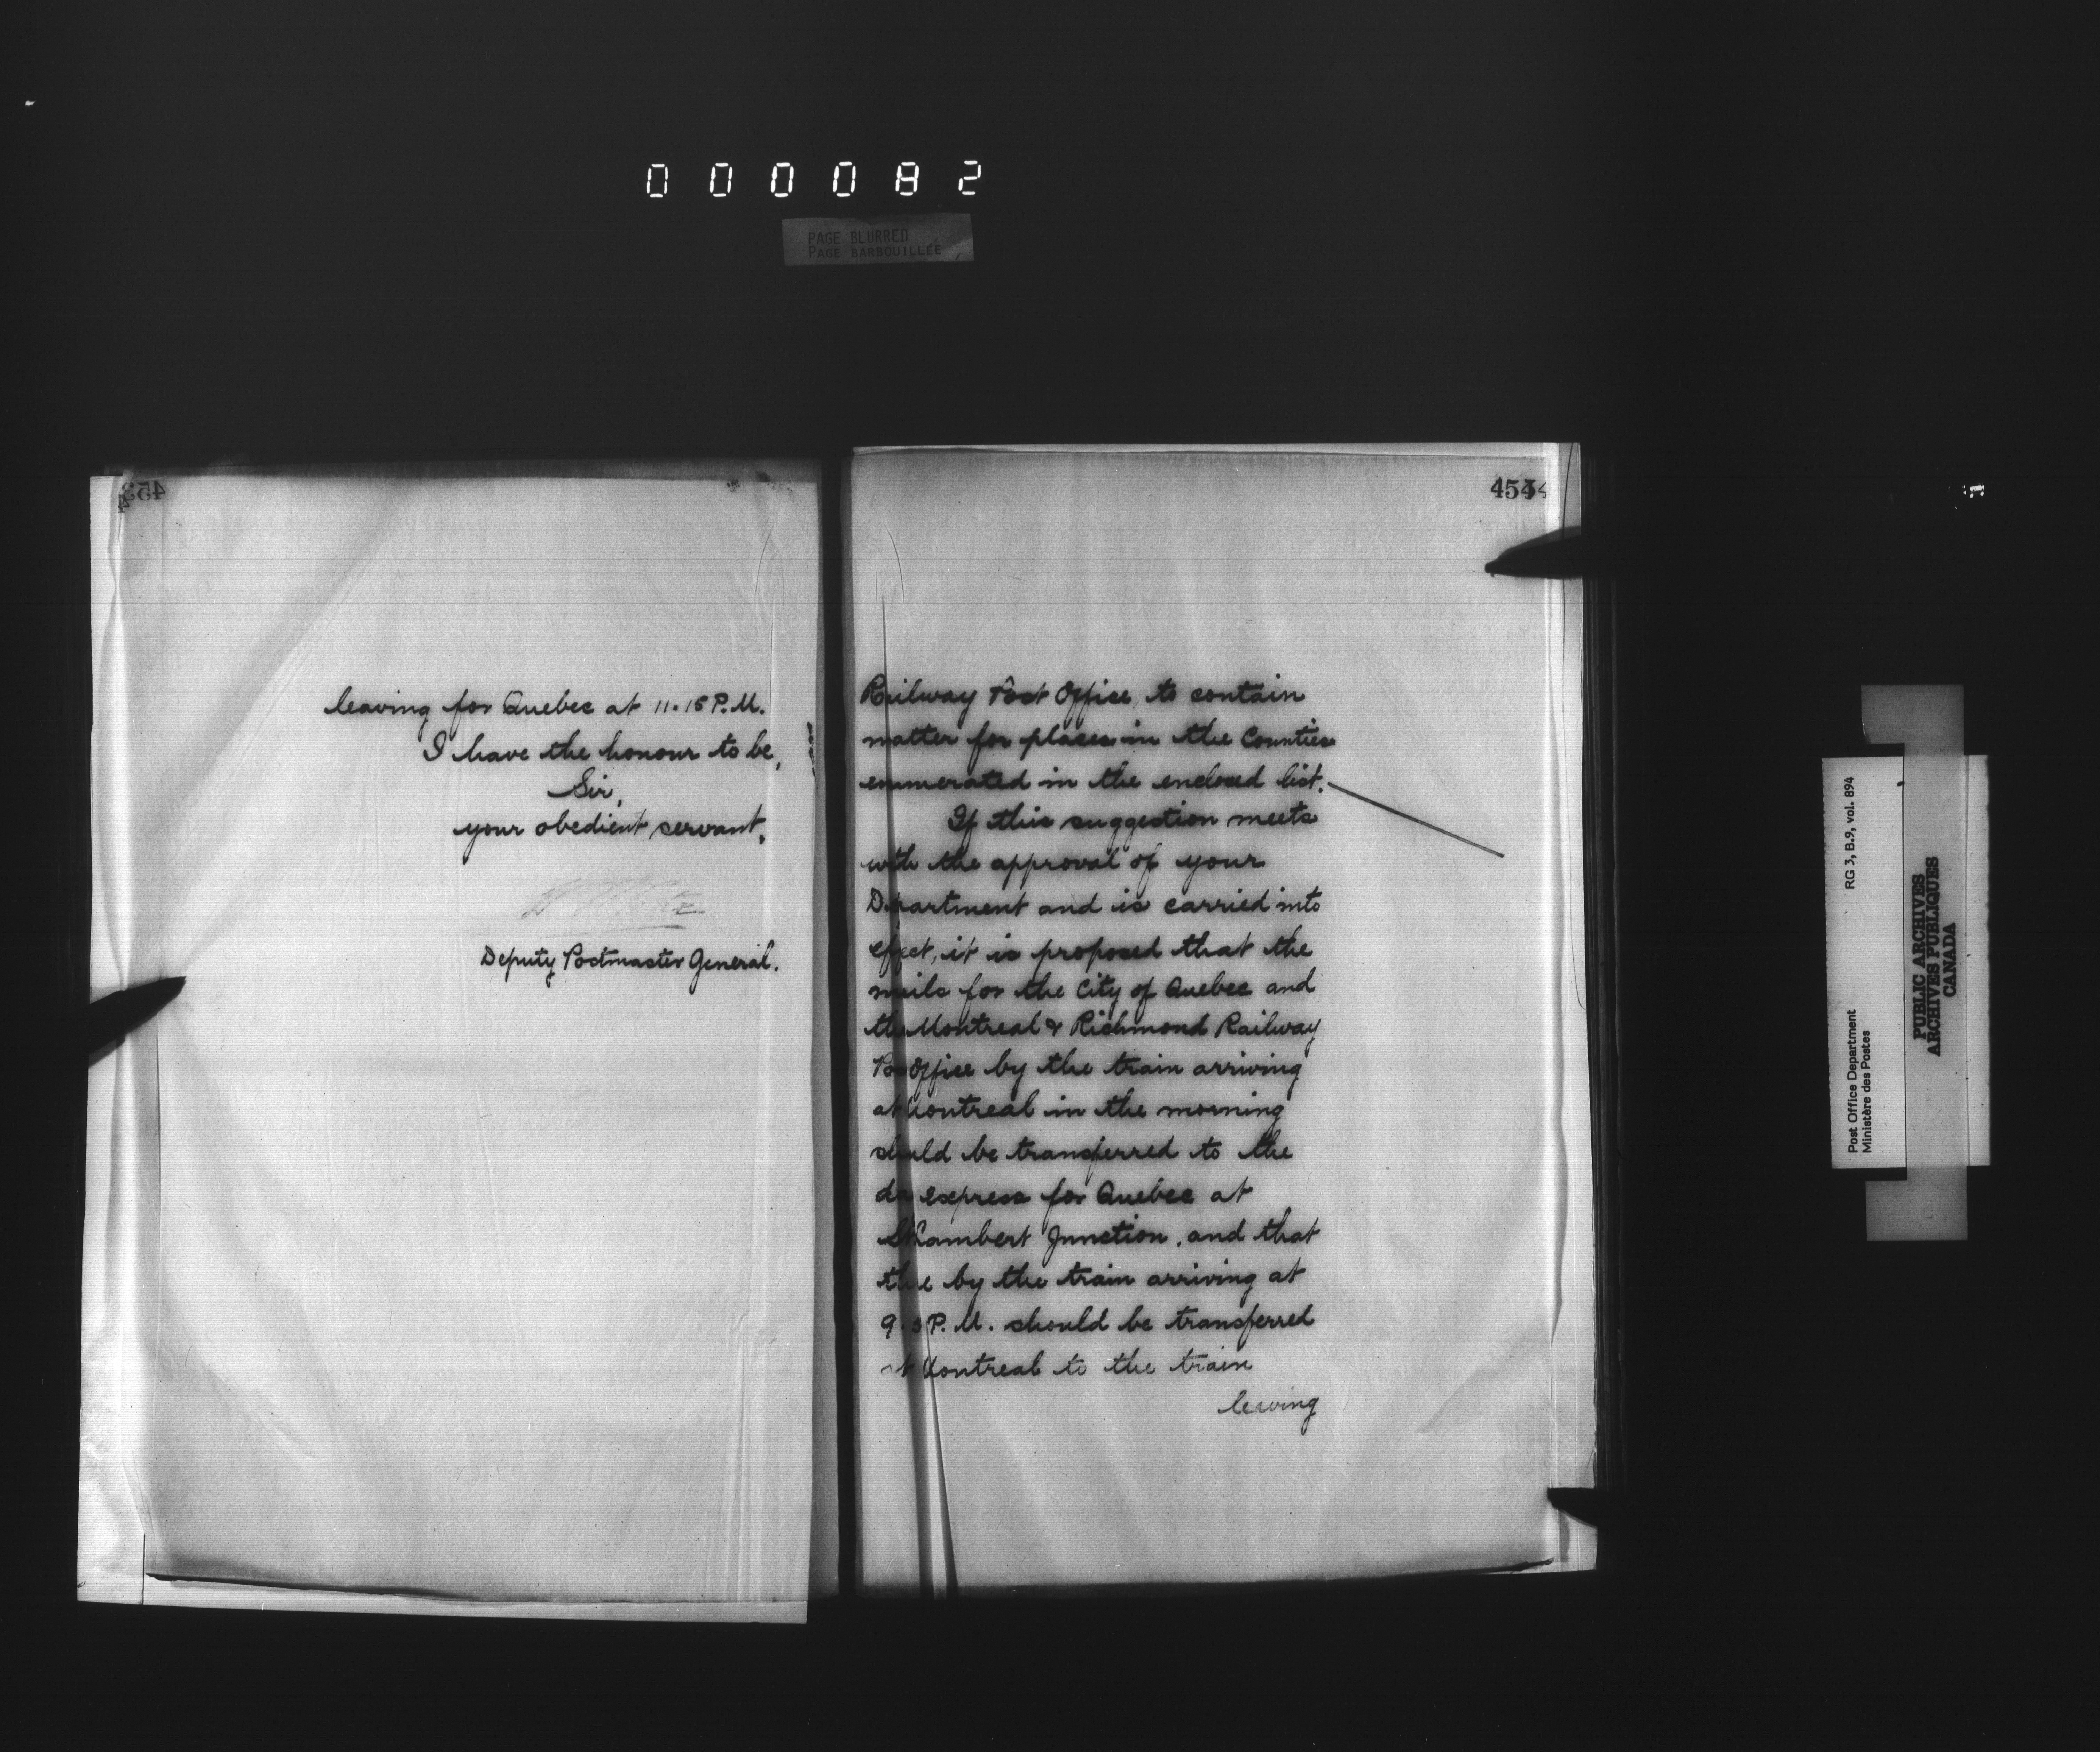 000082
PAGE BLURRED
PAGE BARBOUILLÉE
453
leaving for Quebec at 11.15 P.M.
I have the honour to be,
Sir,
your obedient servant,
Deputy Postmaster General.
454
Railway Post Office, to contain
matter for places in the Counties
enumerated in the enclosed list.
If this suggestion meets
with the approval of your
Department and is carried into
effect, it is proposed that the
mails for the City of Quebec and
the Montreal & Richmond Railway
Post Office by the train arriving
at Montreal in the morning
should be transferred to the
day express for Quebec at
St Lambert Junction, and that
those by the train arriving at
P.M. should be transferred
at Montreal to the train
leaving
Post Office Department
Ministère des Postes
RG 3, B.9, vol. 894
PUBLIC ARCHIVES
ARCHIVES PUBLIQUES
CANADA